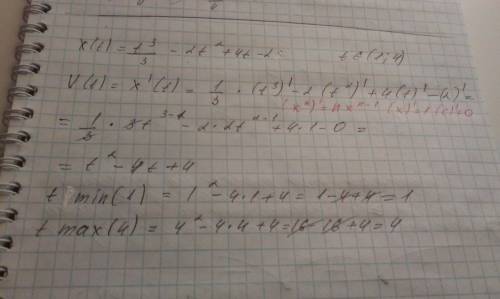 x(t) = t³/3 - 2t² + 4t - 2 t ∈ (1; 4)
V(t) = x'(t) = 1/3 · (t³)' - 2 (t²)' + 4(t)' - (2)' =
(xⁿ)' = nxⁿ⁻¹ (x)' = 1 (c)' = 0
= 1/3 · 3t³⁻¹ - 2 · 2t²⁻¹ + 4 · 1 - 0 =
= t² - 4t + 4
t min(1) = 1² - 4 · 1 + 4 = 1 - 4 + 4 = 1
t max(4) = 4² - 4 · 4 + 4 = 16 - 16 + 4 = 4